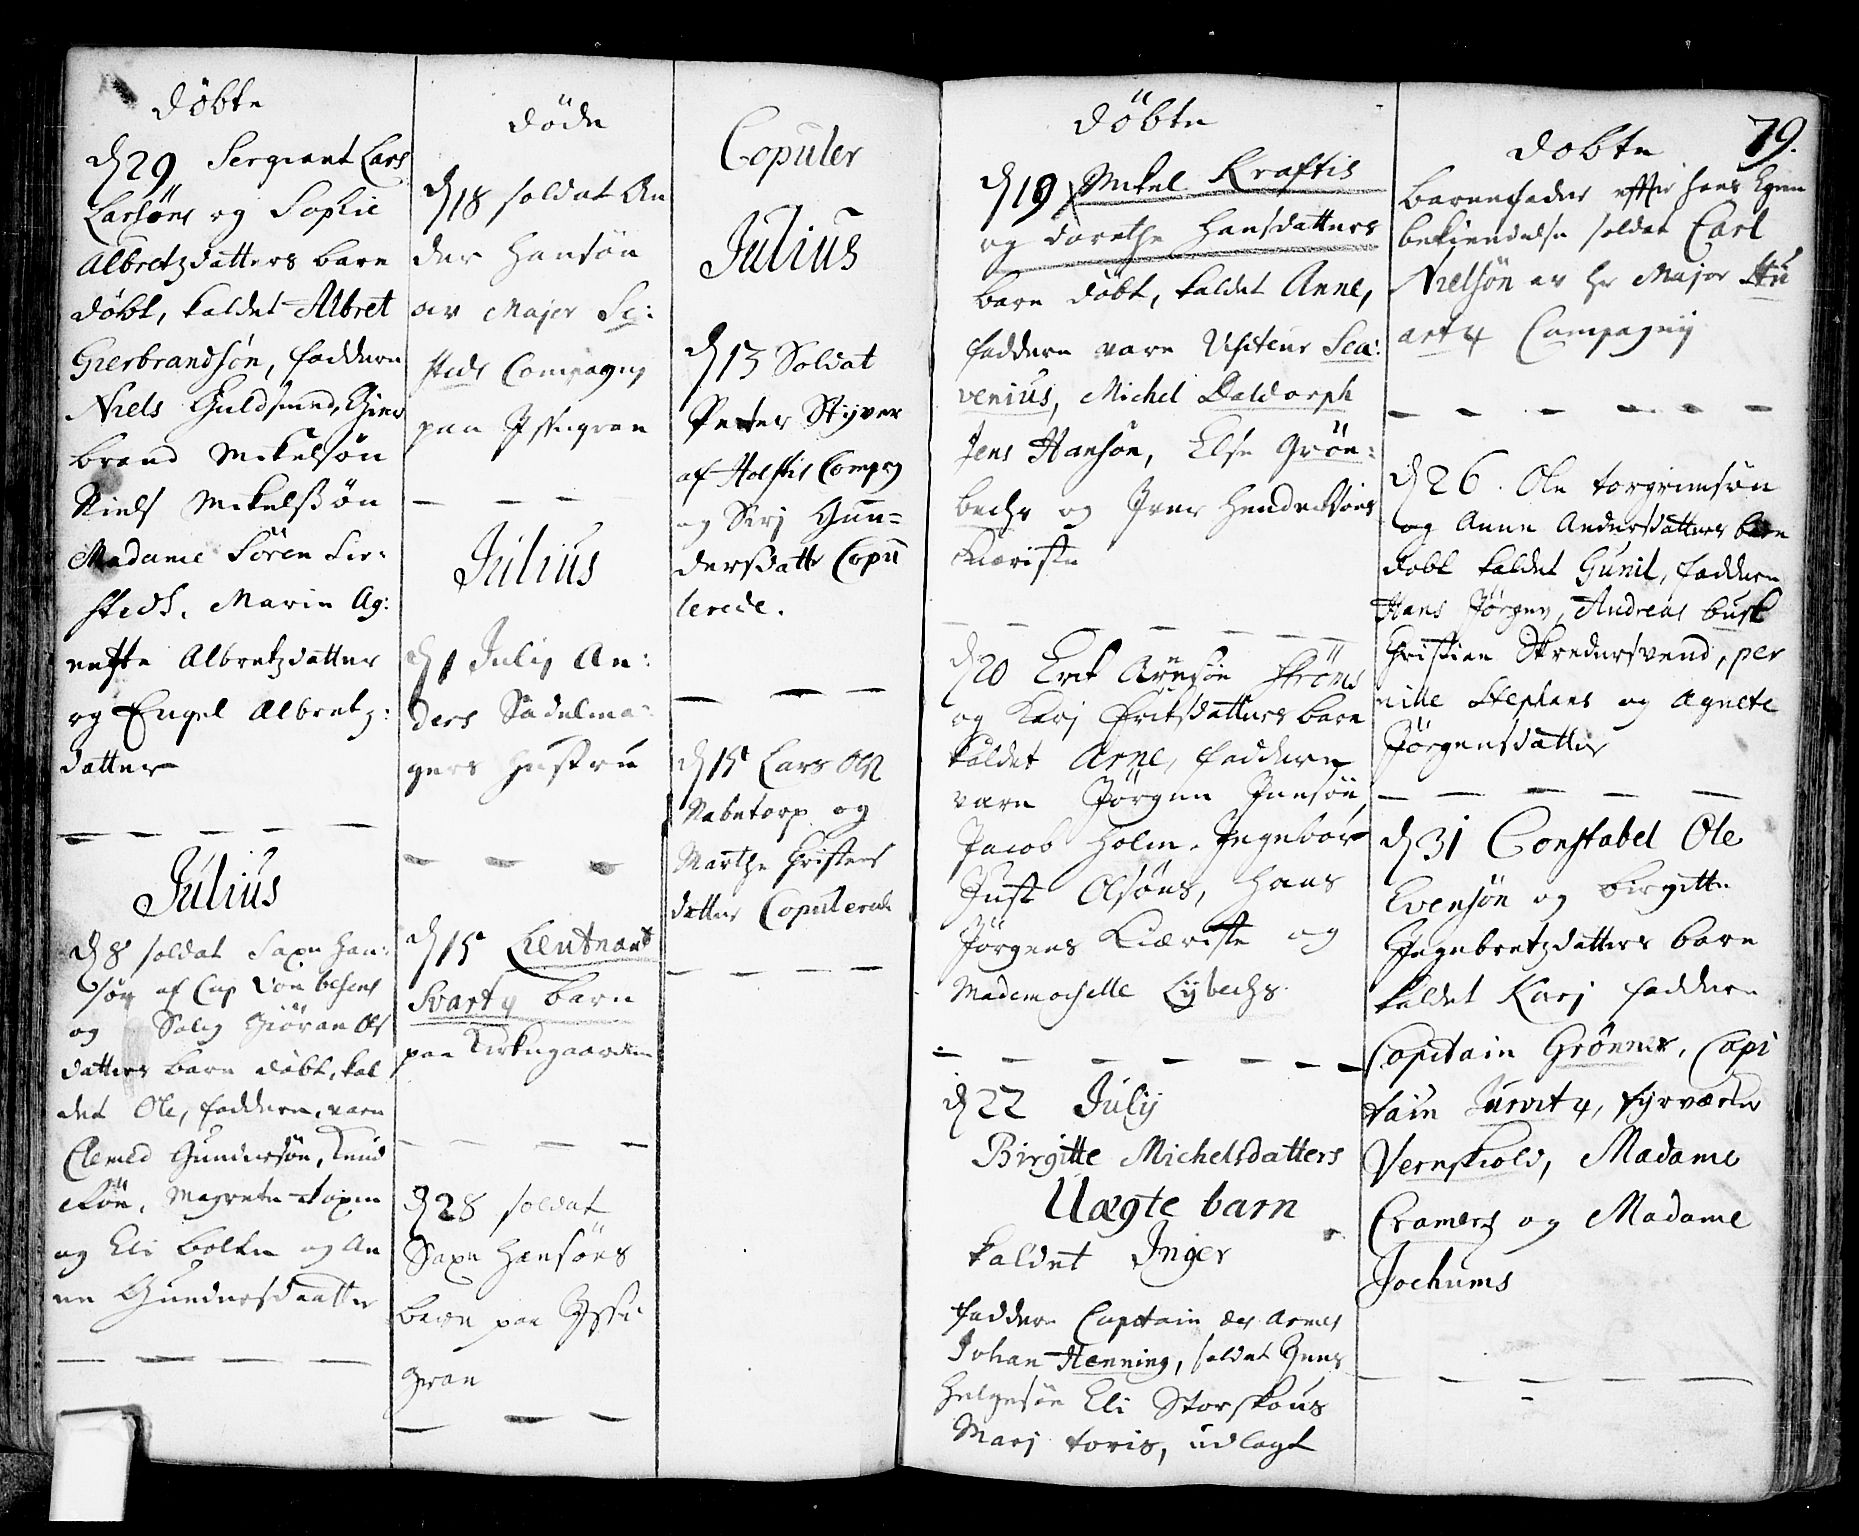 Döbte
d 29 Sergiant Lars
Larsöns og Sophie
Albretzdatters barn
döbt, kaldet Albret
Gierbrandsön, faddern
Niels Guldsmed, Gier
brand Mikelsön
Niels Mikelssön
Madame Sören Sir:
steds, Marin Ag:
nette Albretzdatter
og Engel Albretz:
datter
Julius
d 8 soldat Saxe Han:
sön af Cap von besens
og Salig Giöran Ols
datters barn döbt, kal
det Ole, faddern, varn
Clemed Gundersön, Knud
Rön, Magrete Saxen
og Eli bolten og An
ne Gundersdaatter
Döde
d 18 soldat An
der Hansön
av Majer Se:
steds Compagny
paa Jssegran
Julius
d 1 July An:
ders Sadelma:
gers hustru
d 15 Lieutnant
Svartz barn
paa Kirkegaarden
d 28 soldat
Saxe Hansöns
barn paa Jsse
gran
Copuler
Julius
d 13 Soldat
Petter Styver
af Holstis Compag
og Sirj Gun=
dersdatte Copu
lerede.
d 15 Lars Ols
Nabetorp og
Marthe Christens
datter Copulerede
Döbte
d 19 Mikel Kraftis
og dorethe Hansdatters
barn döbt, kaldet Anne,
faddern vare Visiteur Sca:
venius, Michel Daldorph
Jens Hansön, Else Grön:
bechs og Iver Hendricksöns
Kiæriste
d 20 Erik Arnsön Ströms
og Karj Eritsdatters barn
kaldet Arne, faddern
varn Jörgen Jensön
Jacob Holm, Ingebor
Just Olsöns, Hans
Jörgens Kiæriste og
Mademoiselle Lybechs.
d 22 July
Birgitte Michelsdatters
Uægte barn
kaldet Inger
faddern Capitain de Armes
Johan Henning, soldat Jens
Helgesön Eli Storskous
Marj toris, udlagt
Dobte
79.
barnefader effter hans Egen
bekiendelse soldat Carl
Nielsön av Hr Major Stu
artz Compagnij
d 26. Ole torgrimsön
og Anne Andersdatters barn
dobt kaldet Gunil, faddern
Hans Jörgen, Andreas busk
Christian Skredersvend, per
nille Stephans og Agnete
Jörgensdatter
d 31 Constabel Ole
Evensön og birgitte
Ingebretzdatters barn
kaldet Karj faddern
Capitain Grönner, Capi
tain Jurvitz, fyrværker
Vernskiold, Madame
Cramers og Madame
Jochums